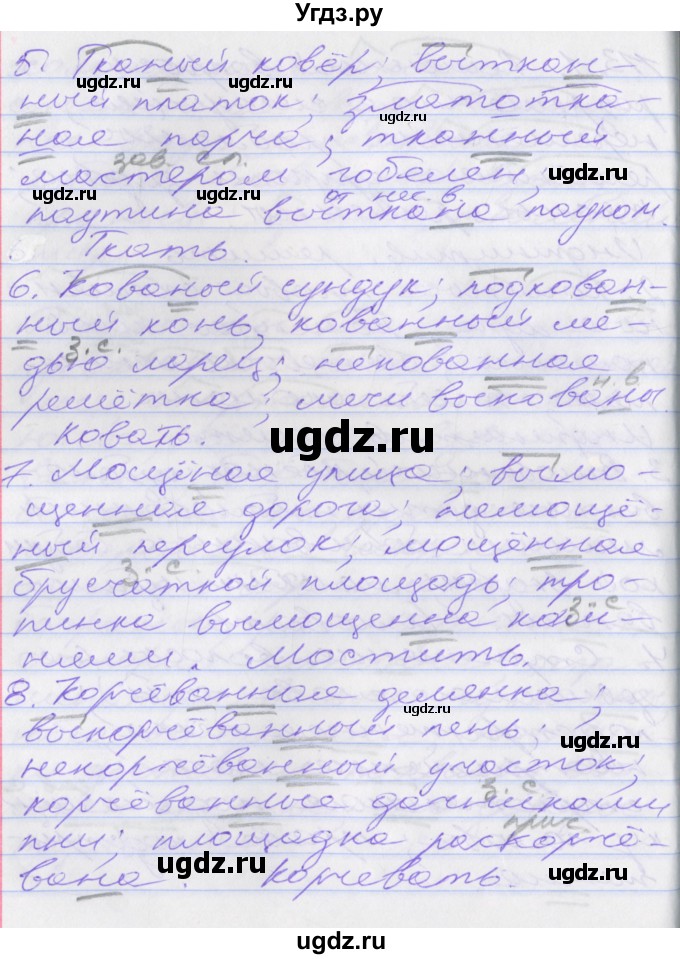 Угдз.ру
5. Тканый ковёр; выткан-
ный платок; златотка-
ная парча; тканный
зав. сл.
мастером гобелен;
от нес. в.
паутина выткана пауком.
Ткать.
6. Кованый сундук; подкован-
ный конь, кованный ме-
з. с.
дью ларец; некованная
н. в
решётка; мечи выкованы.
Ковать.
7. Мощёная улица; вымо-
щенная дорога; немощё-
ный переулок; мощённая
з. с.
брусчаткой площадь; тро-
з. с
пинка вымощенна кам-
нями. Мостить.
8. Корчёванная делянка;
выкорчёванный пень;
некорчёванный участок;
з. с
корчёванные дачниками
прич.
пни; площадка раскорчё-
вана. Корчевать.
ugdz.ru
ugdz.ru
ugdz.ru
ugdz.ru
ugdz.ru
ugdz.ru
ugdz.ru
ugdz.ru
ugdz.ru
ugdz.ru
ugdz.ru
ugdz.ru
ugdz.ru